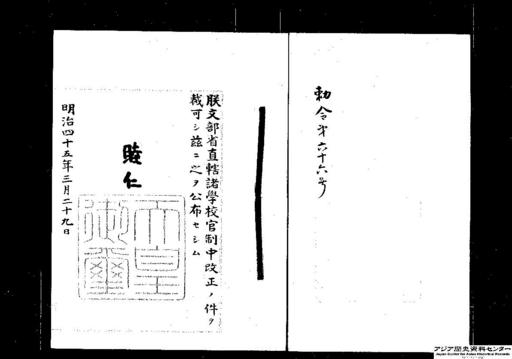 勅令第六十六号
朕文部省直轄諸學校官制中改正ノ件ヲ
裁可シ茲ニ之ヲ公布セシム
睦仁
天皇御璽
明治四十五年三月二十九日
アジア歴史資料センター
Japan Center for Asian Historical Records